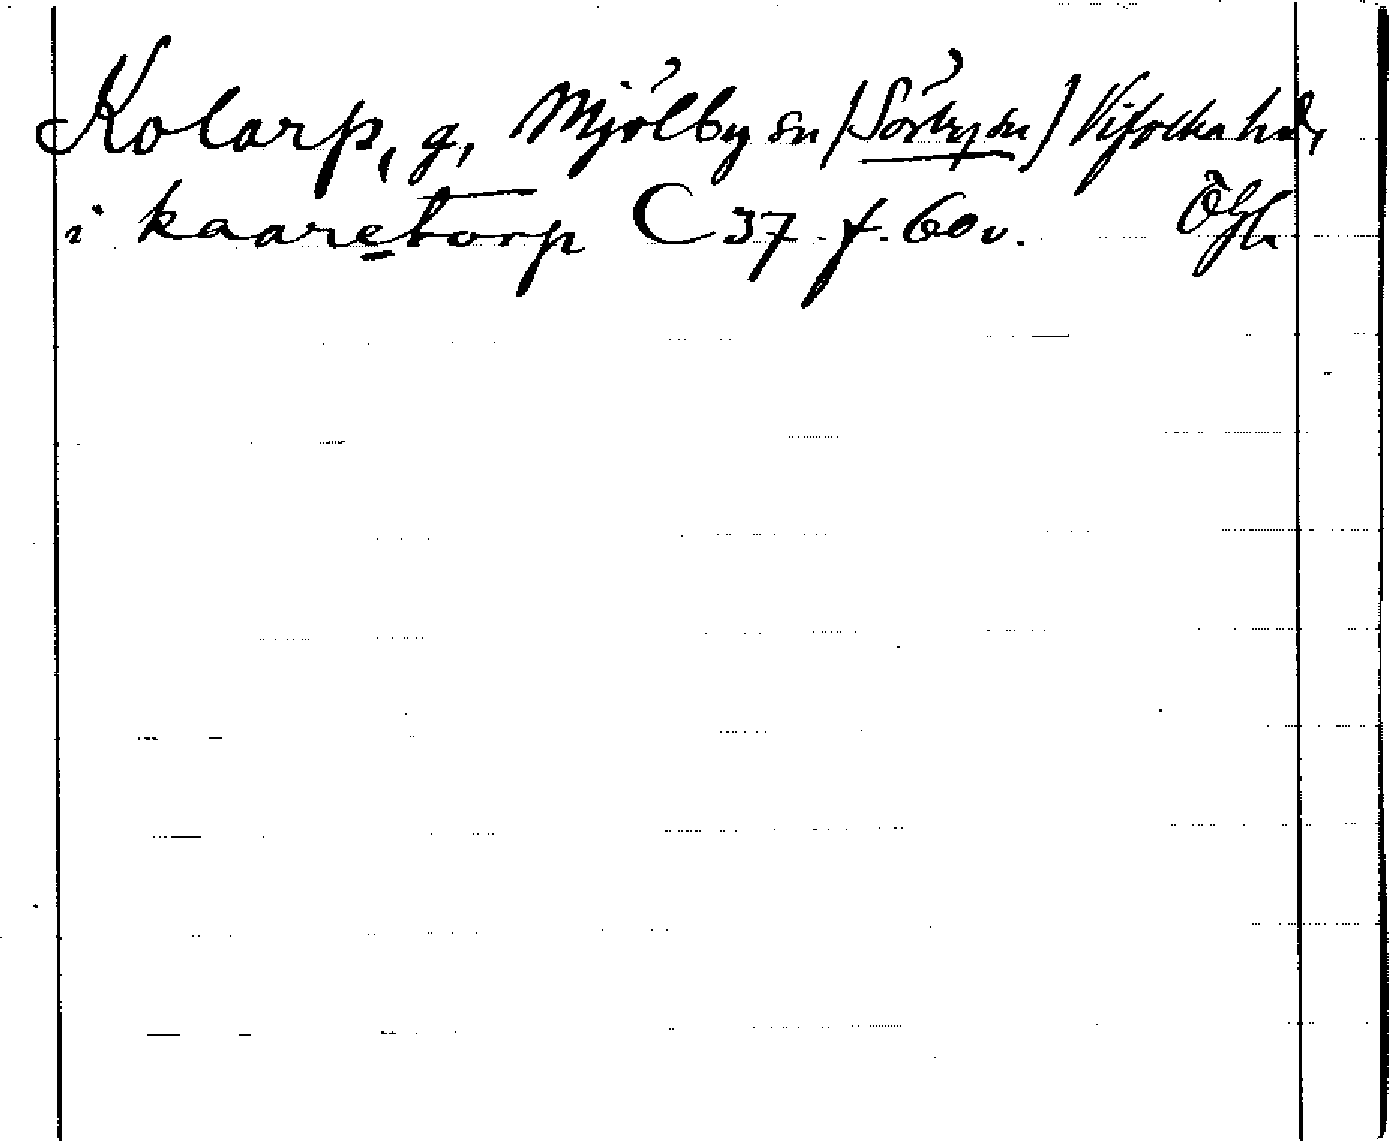 Kolarp, g, Mjölby sn (Sörby sn) Vifolka hd,
i kaaretorp C 37 f. 60v. Ögl